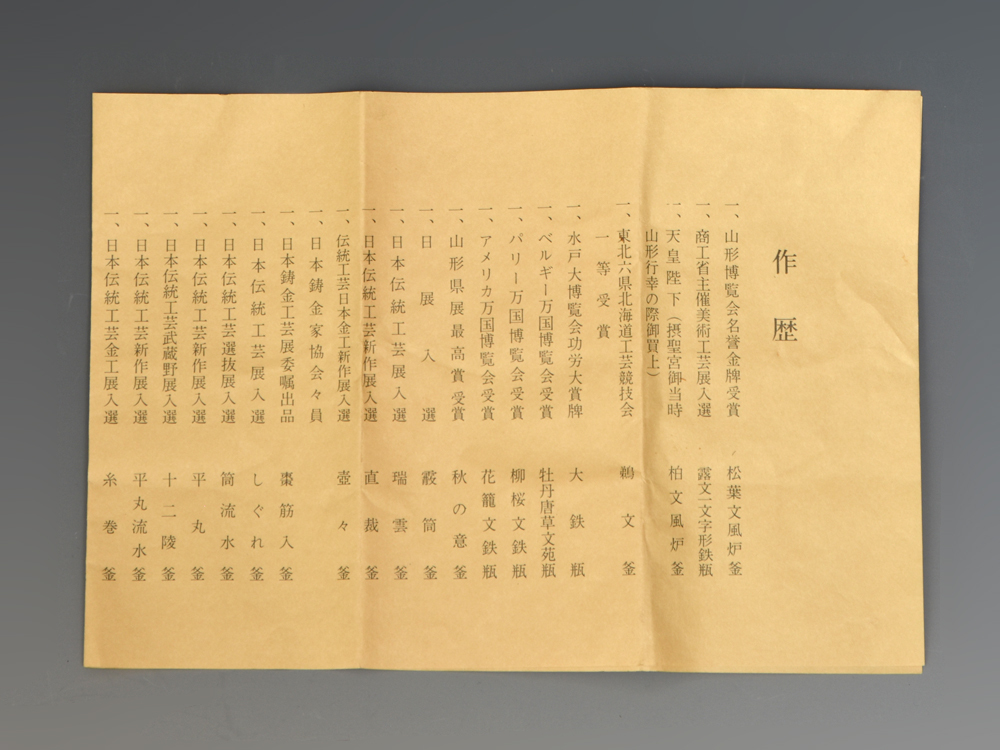 作歴
一、山形博覧会名誉金牌受賞 松葉文風炉釜
一、商工省主催美術工芸展入選 露文一文字形鉄瓶
一、天皇陛下(摂聖宮御当時 柏文風炉釜
山形行幸の際御買上)
一、東北六県北海道工芸競技会 鵜文釜
一等受賞
一、水戸大博覧会功労大賞牌 大鉄瓶
一、ベルギー万国博覧会受賞 牡丹唐草文苑瓶
一、パリー万国博覧会受賞 柳桜文鉄瓶
一、アメリカ万国博覧会受賞 花籠文鉄瓶
一、山形県展最高賞受賞 秋の意釜
一、日展入選 霰筒釜
一、日本伝統工芸展入選 瑞雲釜
一、日本伝統工芸新作展入選 直裁釜
一、伝統工芸日本金工新作展入選 壺々釜
一、日本鋳金家協会々員
一、日本鋳金工芸展委嘱出品 棗筋入釜
一、日本伝統工芸展入選 しぐれ釜
一、日本伝統工芸選抜展入選 筒流水釜
一、日本伝統工芸新作展入選 平丸釜
一、日本伝統工芸武蔵野展入選 十二陵釜
一、日本伝統工芸新作展入選 平丸流水釜
一、日本伝統工芸金工展入選 糸巻釜